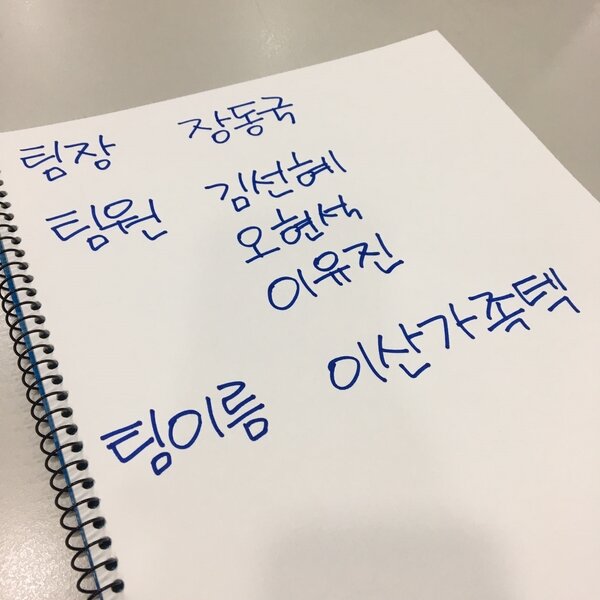 팀장 장동국
팀원 김선혜
오현석
이유진
팀이름 이산가족텍